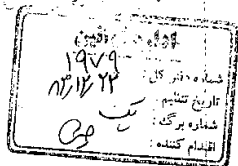 ۱۹۷۹
شماره دفتر کل :
تاریخ تنظیم : ۸۳/۱۲/۲۳
شماره برگ : یک
اقدام کننده :